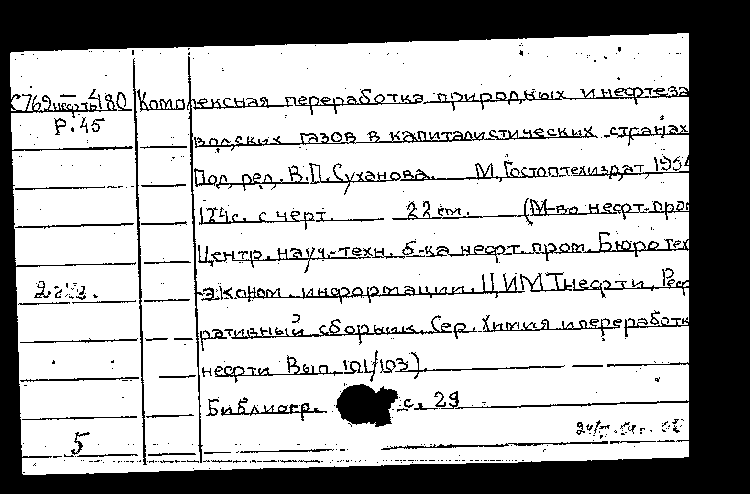 С769нефть-4180 Комплексная переработка природных и нефтеза
Р.45
водских газов в капиталистических странах
Под ред. В.П.Суханова. М, Гостоптехиздат, 1954
124с. с черт. 22 см. (М-во нефт. пром
Центр. науч.-техн. б-ка нефт. пром. Бюро тех
-эконом. информации. ЦИМТнефти. Реф
2 экз.
ративный сборник. Сер. Химия и переработк
нефти Вып. 101/103).
Библиогр. с. 29
5